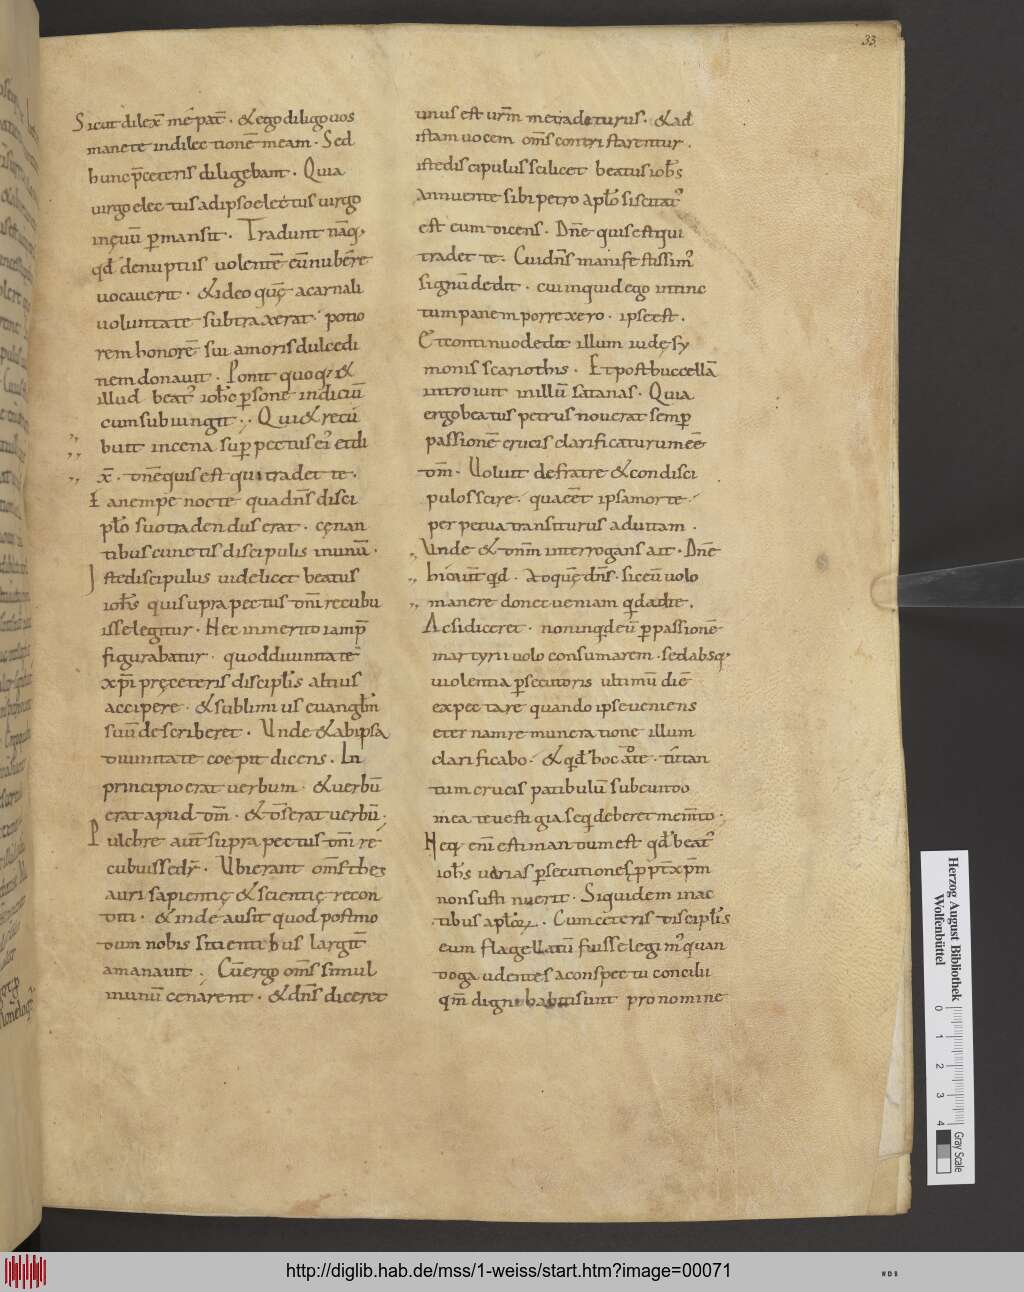 33
Sicut dilex̄ me pat̄. & ego diligo uos
manete in dilectione meam. Sed
hunc p̄ceteris diligebant. Quia
uirgo electus ad ipso electus uirgo
in ęuū p̱mansit. Tradunt nāq;
qđ de nuptiis uolentē eū nubere
uocauerit. & ideo quē a carnali
uoluntate subtraxerat. potio
rem honorē sui amoris dulcedi
nem donauit. Ponit quoq; &
illud beat᾽ ioh̄s p̱sone indiciū
cum subiungit. Qui & recū
buit in cena sup̱ pectus ei᾽ et di
x̄. dn̄e quis est qui tradet te.
Ea nempe nocte qua dn̄s disci
pl̄o suo tradendus erat. cęnan
tibus cunctis discipulis in unū.
Iste discipulus uidelicet beatus
ioh̄s qui supra pectus dn̄i recubu
isse legitur. Hec inmerito iam p̄
figurabatur. quod diuinitatē
xp̄i pręceteris disciplis altius
accipere. & sublimius euangłm
suū describeret. Unde & ab ipsa
diuinitate coepit dicens. In
principio erat uerbum. & uerbū
erat apud dm̄. & ds̄ erat uerbū.
Pulchre aut̄ supra pectus dn̄i re
cubuisse dr̄. Ubi erant om̄s thes
auri sapientię & scientię recon
diti. & inde ausit quod postmo
dum nobis sitientibus largit̄
amanauit. Cū ergo om̄s simul
in unū cenarent. & dn̄s diceret
unus est urm̄ me traditurus. & ad
istam uocem om̄s contristarentur.
iste discipulus scilicet beatus ioh̄s
annuente sibi petro apl̄o siscitat᾽
est cum dicens. Dn̄e quis est qui
tradet te. Cui dn̄s manifestissim᾽
signū dedit. cui inquid ego intinc
tum panem porrexero. ipse est.
Et continuo dedit illum iudę sy
monis scariothis. Et post buccellā
introiuit in illū satanas. Quia
ergo beatus petrus nouerat semp̱
passionē crucis clarificaturum eē
dm̄. Uoluit de fratre & condisci
pulos scire. qua eēt ipsa morte
per petua transiturus ad uitam.
Unde & dnm̄ interrogans ait. Dn̄e
hic aut̄ qd. Ad quē dn̄s. sic eū uolo
manere donec ueniam qd ad te.
Ac si diceret. non inq;d eū p̱ passionē
martyrii uolo consumarem. sed absq;
uiolentia p̱secutoris ultimū diē
expectare quando ipse ueniens
eternam remuneratione illum
clarificabo. & qđ hoc ad te. tu tan
tum crucis patibulū subeundo
mea te uestigia seq; deberet mem̄to.
Hec eni᾽ estimandum est qđ beat᾽
ioh̄s uarias p̱secutiones p̱pt̄ xp̄m
non susti nuerit. Siquidem in ac
tibus apl̄oꝝ. Cum ceteris discipl̄is
eum flagellatū fuisse legim᾽ quan
do gaudentes a conspectu concilii
qm̄ digni habiti sunt pro nomine
Herzog August Bibliothek
Wolfenbüttel
0 1 2 3 4
Gray Scale
http://diglib.hab.de/mss/1-weiss/start.htm?image=00071